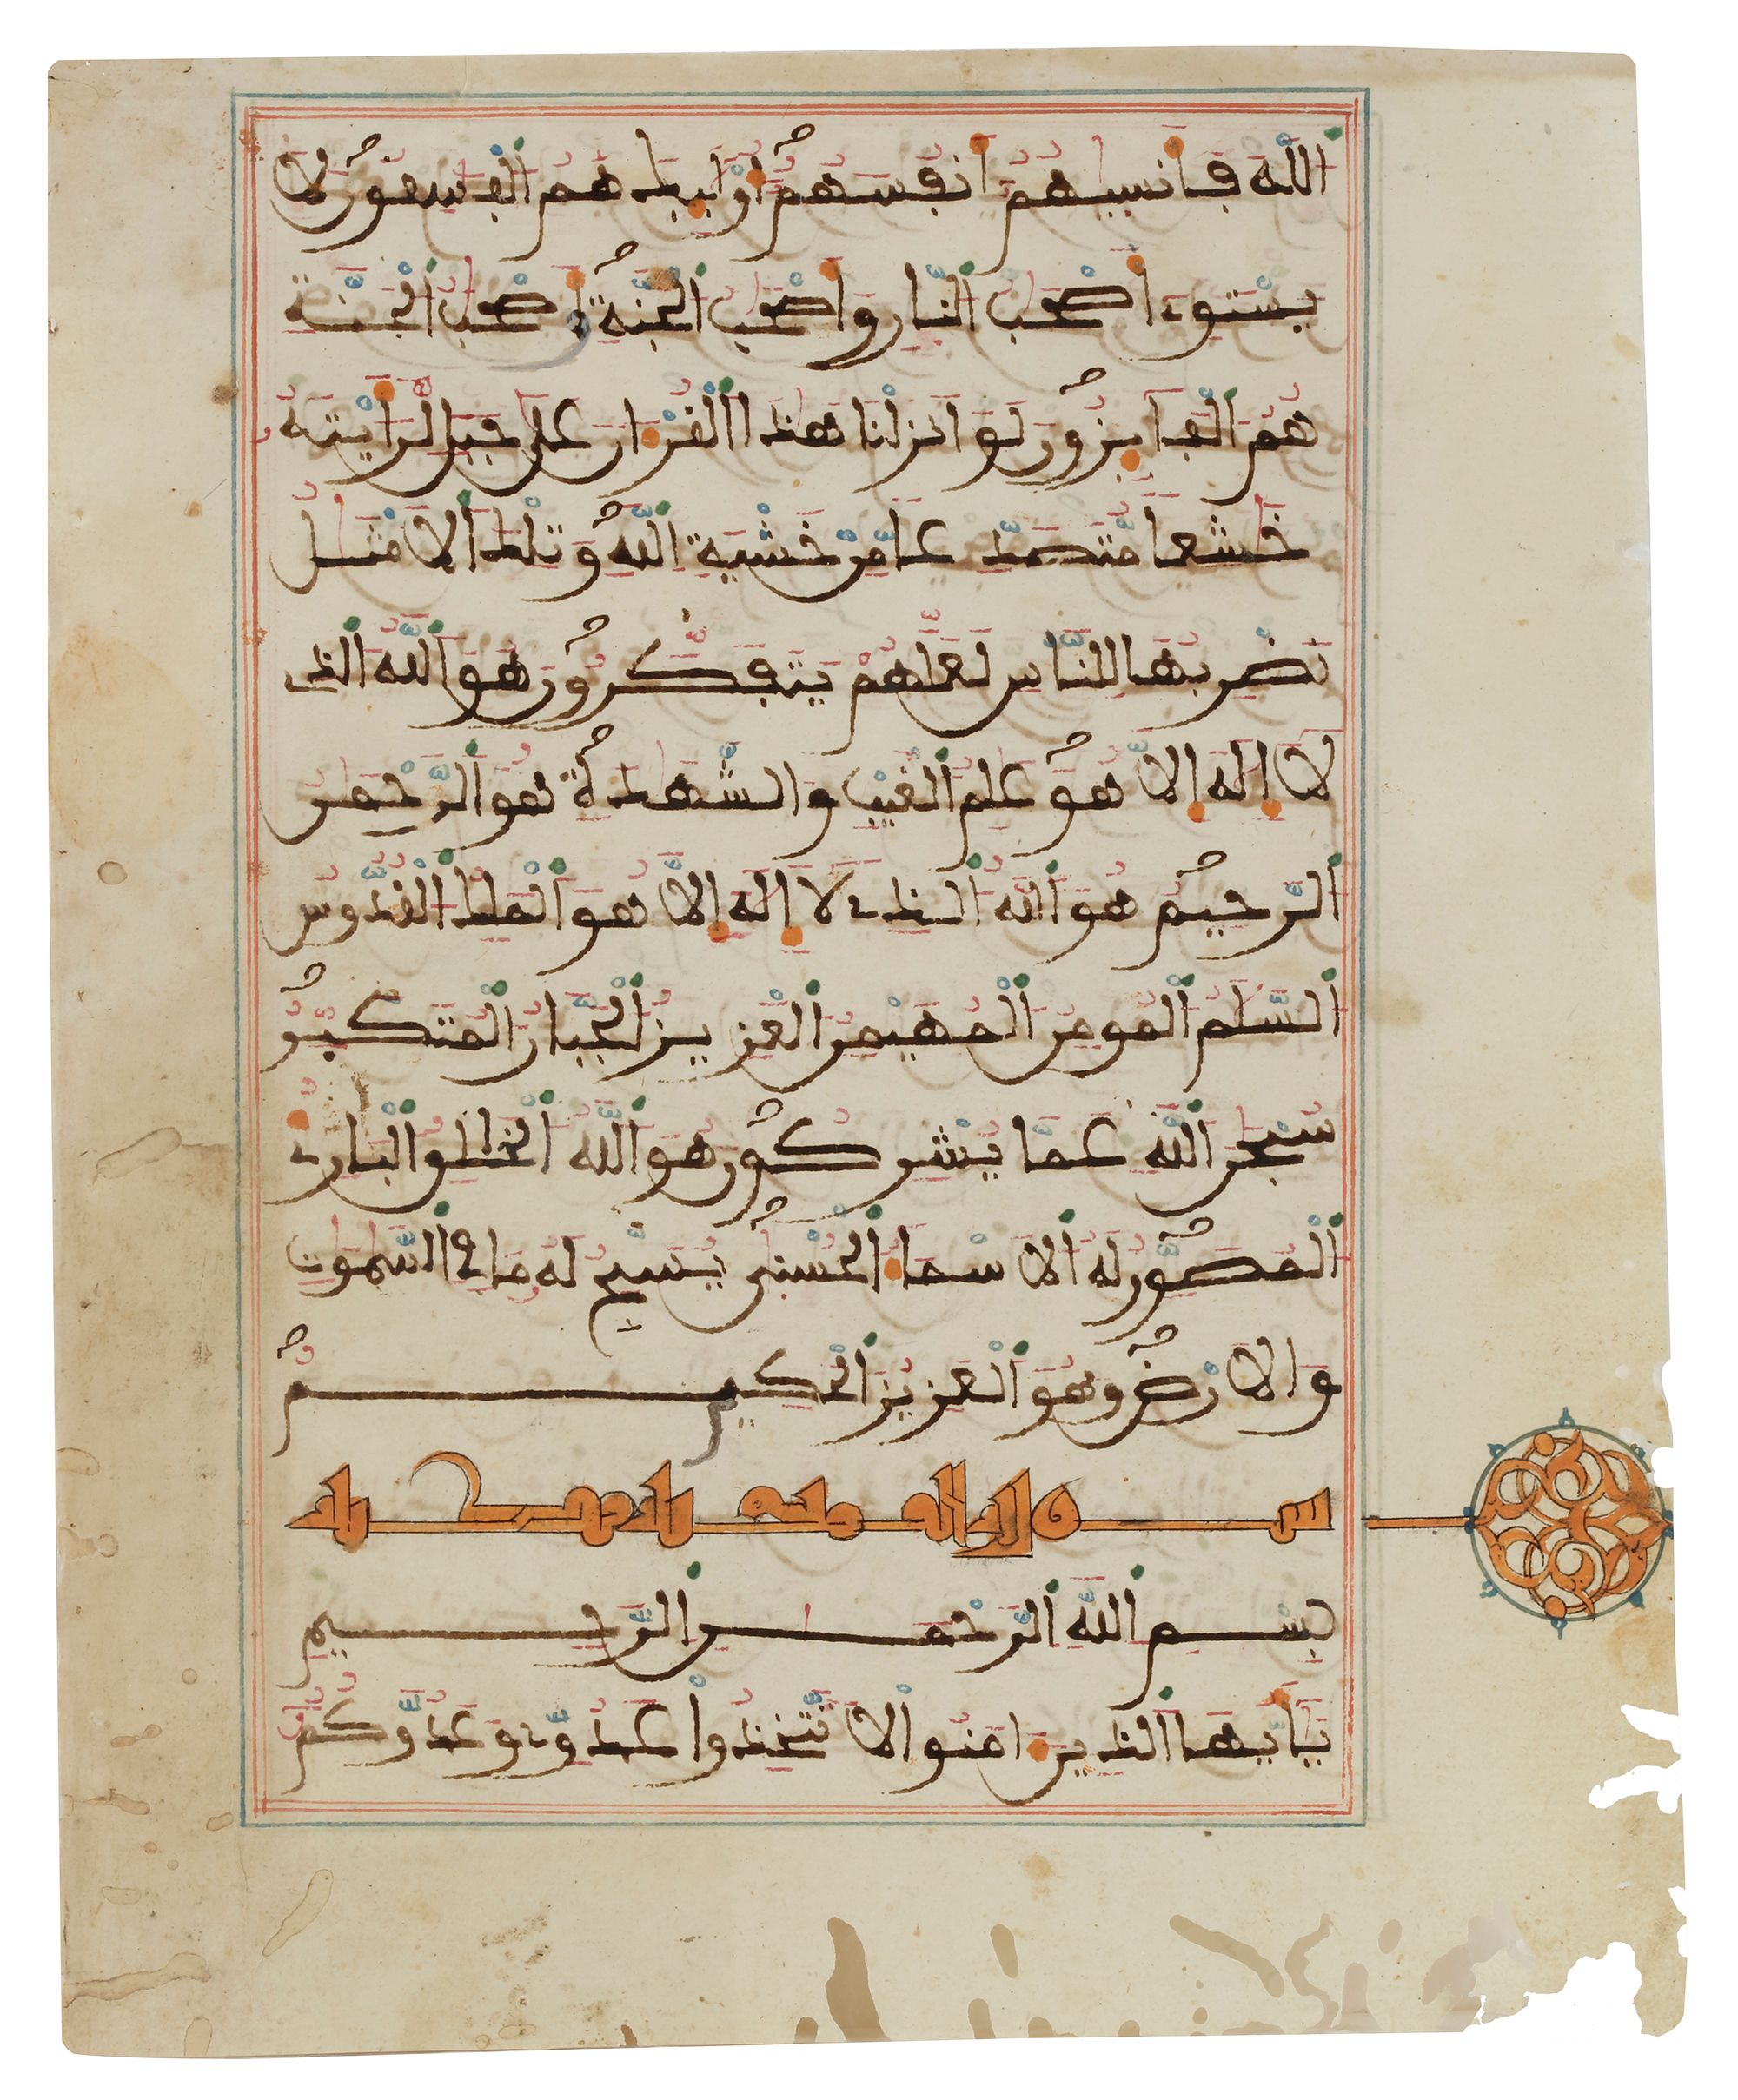 الله فانسيهم انفسهم اوليك هم الفسقون لا
يستوے اصحب النار واصحب الجنة اصحب الجنة
هم الفايزون لو انزلنا هذا القران على جبل لرايته
خشعا متصدعا من خشية الله وتلك الامثل
نضربها للناس لعلهم يتفكرون هو الله الذے
لا اله الا هو علم الغيب والشهدة هو الرحمن
الرحيم هو الله الذے لا اله الا هو الملك القدوس
السلم المومن المهيمن العزيز الجبار المتكبر
سبحن الله عما يشركون هو الله الخلق البارے
المصور له الاسما الحسنى يسبح له ما في السموت
والارض وهو العزيز الحكيم
بسم الله الرحمن الرحيم
يايها الذين امنوا لا تتخذوا عدوے وعدوكم